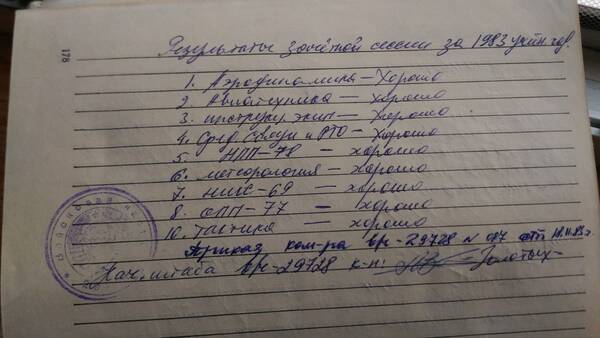 178
Результаты зачётной сессии за 1983 учебн. год.
1. Аэродинамика — Хорошо
2 Авиатехника — хорошо
3. инструкц. экип — Хорошо
4. Сред Связи и РТО — Хорошо
5. НПП-78 — хорошо
6. метеорология — Хорошо
7. НИАС-69 — хорошо
8 ОПП-77 — Хорошо
10. Тактика — хорошо
Приказ ком-ра в/ч-29728 N 087 от 18.11.83г.
Нач. штаба в/ч-29728 к-н: Золотых